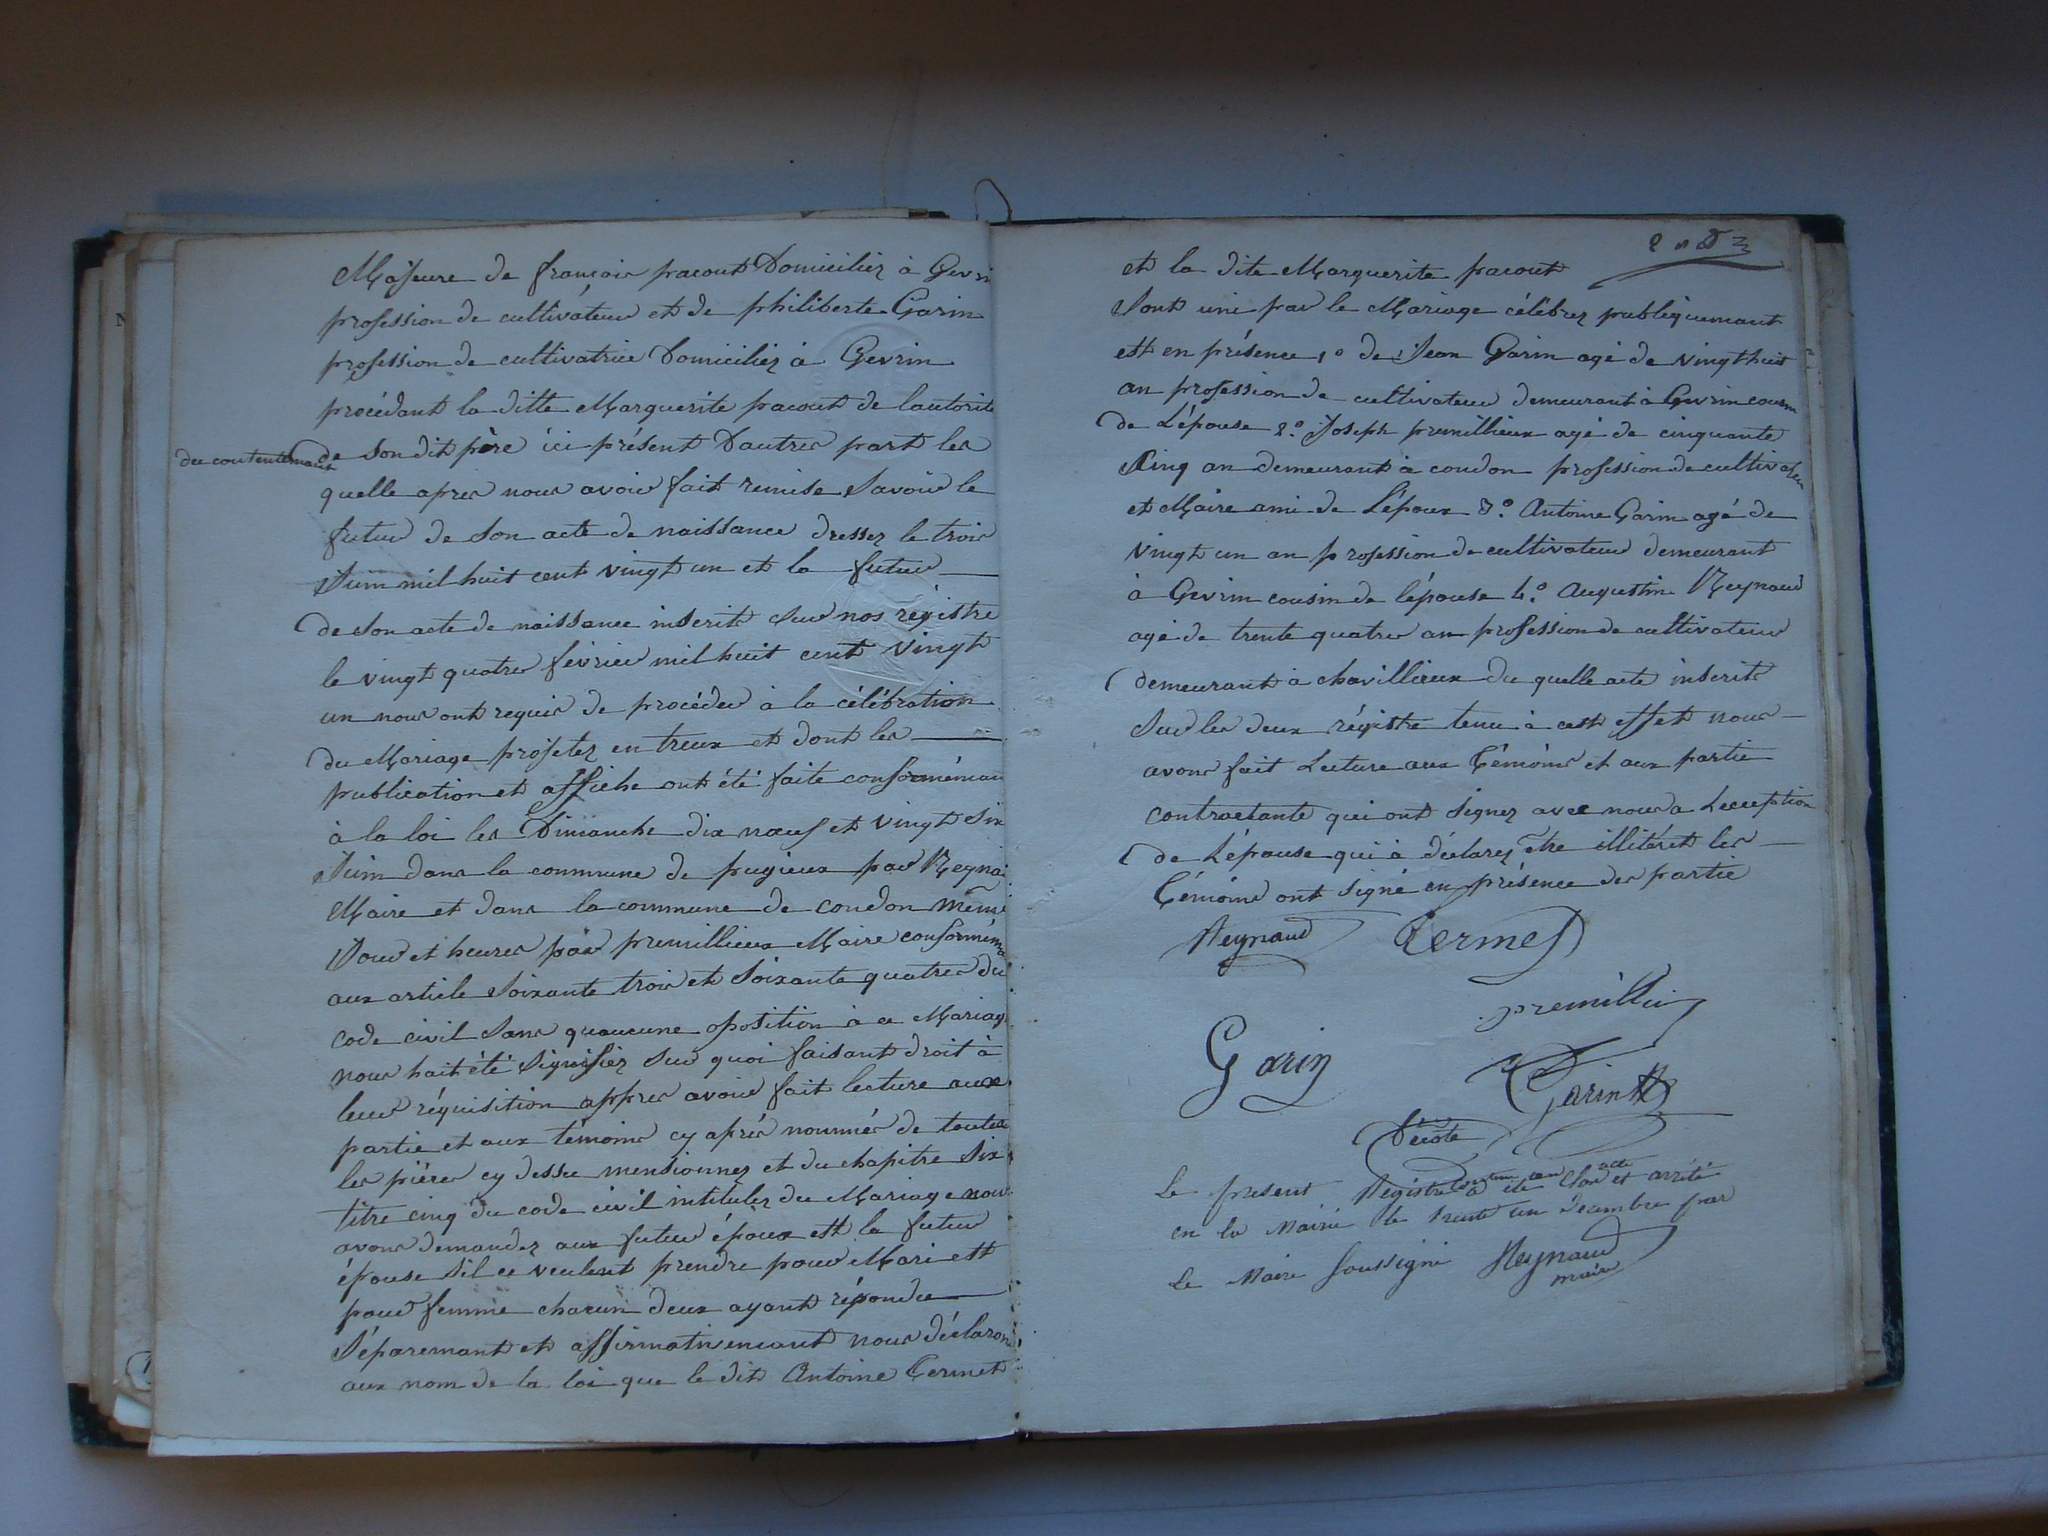 Majeure de françois pacout Domiciliez à Gevrin
profession de cultivateur et de philiberte Garin
profession de cultivatrice Domiciliez à Gevrin
procédant la ditte Marguerite pacout de lautorité
du contentemant
de son dit père ici présent Dautre part les
quelle apres nous avoir fait remise Savoir le
futur de son acte de naissance dressez le trois
Juin mil huit cent vingt un et la futur
de son acte de naissance inscrit sur nos régistre
le vingt quatre février mil huit cent vingt
un nous ont requis de procéder à la célébration
du Mariage projetez entreux et dont les
publication et affiche ont été faite conformémant
à la loi les Dimanche dix nœuf et vingt six
Juin dans la commune de pugieux par Reynaud
Maire et dans la commune de condon même
Jour et heures par premillieux Maire conformémant
aux article soixante trois et soixante quatre du
code civil sans quaucune oposition à ce Mariage
nous hait été signifiez sur quoi faisant droit à
leur réquisition appres avoir fait lecture aux
partie et aux témoins cy après nommés de toutes
les pièces cy dessu mensionnez et du chapitre six
titre cinq du code civil intitulez du Mariage nous
avons demandez aux futur époux est la futur
épouse sil ce veulent prendre pour Mari est
pour femme chacun deux ayant répondu
séparemant et affirmativemant nous déclarons
aux nom de la loi que le dit Antoine Cermet
et la dite Marguerite pacout
sont uni par le Mariage célébrez publiquemant
est en présence 1º de Jean Garin agé de vingt huit
an profession de cultivateur demeurant à Gevrin cousin
de L'épouse 2º Joseph premillieux agé de cinquante
cinq an demeurant à condon profession de cultivateur
et Maire ami de L'époux 3º Antoine Garin agé de
vingt un an profession de cultivateur demeurant
à Gevrin cousin de l'épouse 4º Augustin Reynaud
agé de trente quatre an profession de cultivateur
demeurant à chavillieux du quelle acte inscrit
sur les deux régistre tenu à cest effet nous
avons fait Lecture aux Témoins et aux partie
contractante qui ont signez avec nous a Lecception
de L'épouse qui à déclarez être illitéret les
Témoins ont signé en présence des partie
Reynaud Cermet
premillieux
Garin
Garin
Décote
Le present Registre contenant acte a été Clos et arrêté
en la Mairie le trente un décembre par
Le Maire soussigné Reynaud
maire